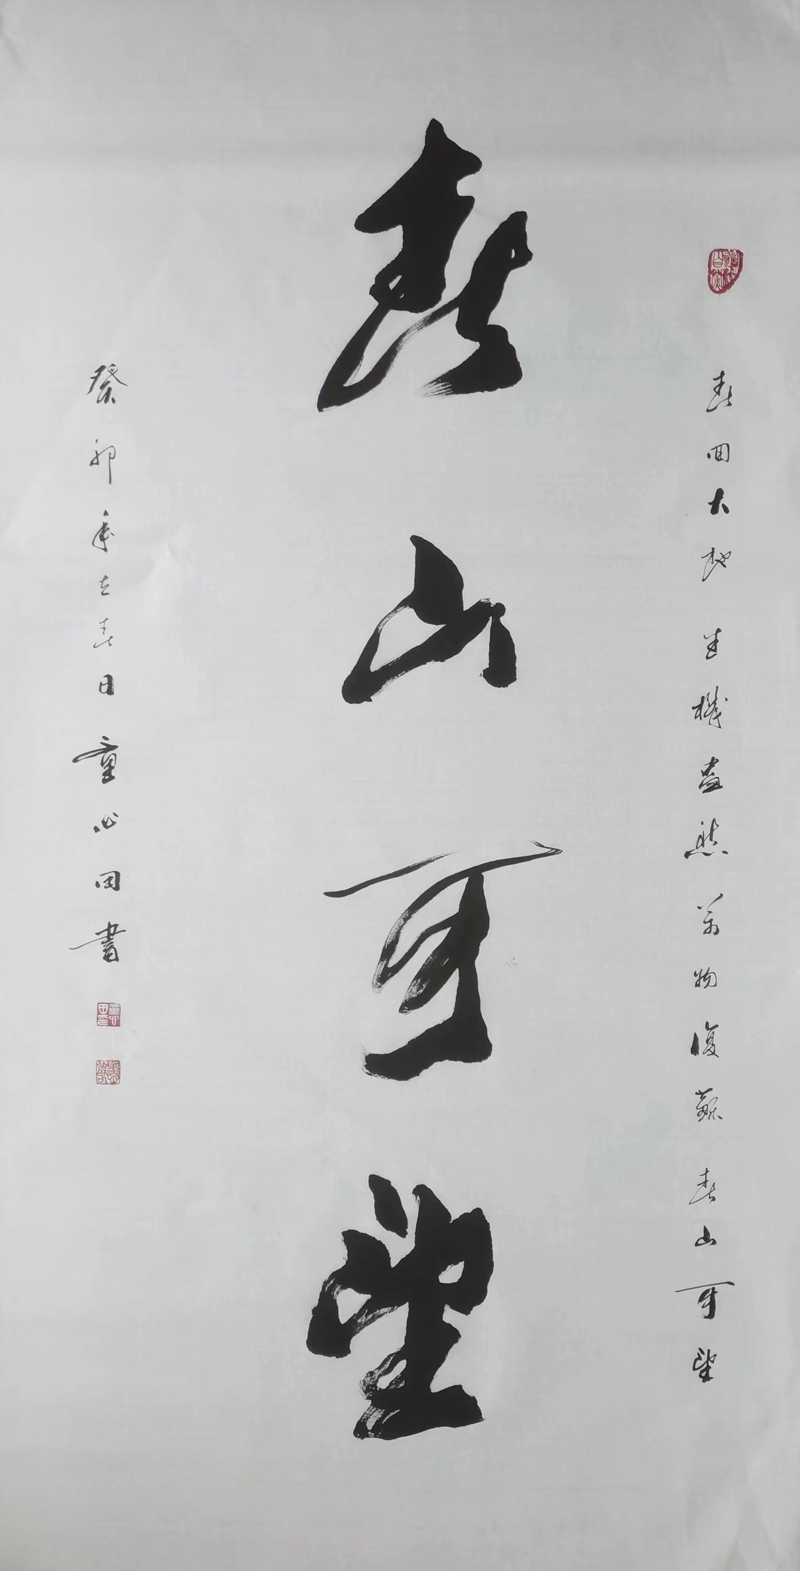 春回大地生機盎然萬物復蘇春山可望
春山可望
癸卯年立春日童心田書